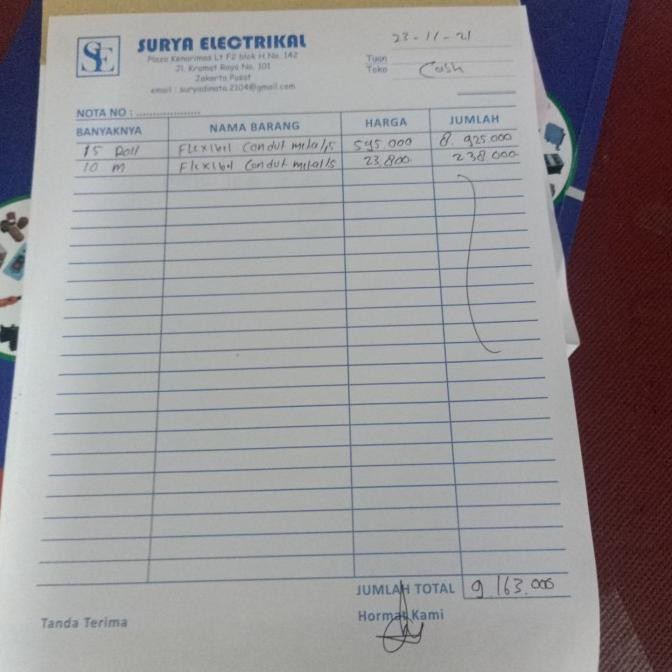 SE
SURYA ELECTRIKAL
Plaza Kenarimas Lt F2 blok H No. 142
Jl. Kramat Raya No. 101
Jakarta Pusat
email : suryadinata.2104@gmail.com
23-11-21
Tuan
Toko Cash
NOTA NO : ....................
BANYAKNYA NAMA BARANG HARGA JUMLAH
15 Roll Flexibel Conduk 595.000 8.925.000
10 m Flexibel Conduk 23.800 238.000
JUMLAH TOTAL 9.163.000
Tanda Terima Hormat Kami